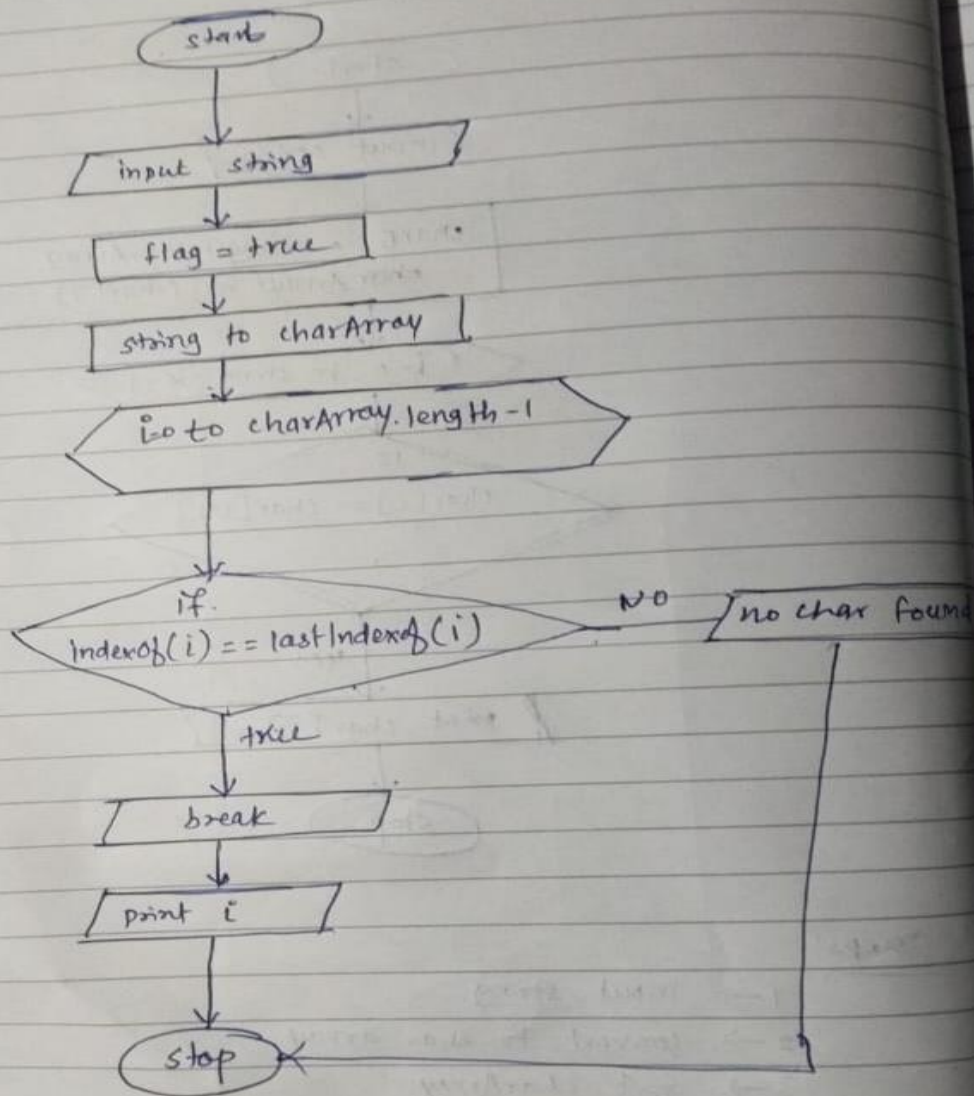 start
input string
flag = true
string to charArray
i=0 to charArray.length-1
if.
Indexof(i) == lastIndexof(i)
NO
no char found
true
break
print i
stop
1→ input string